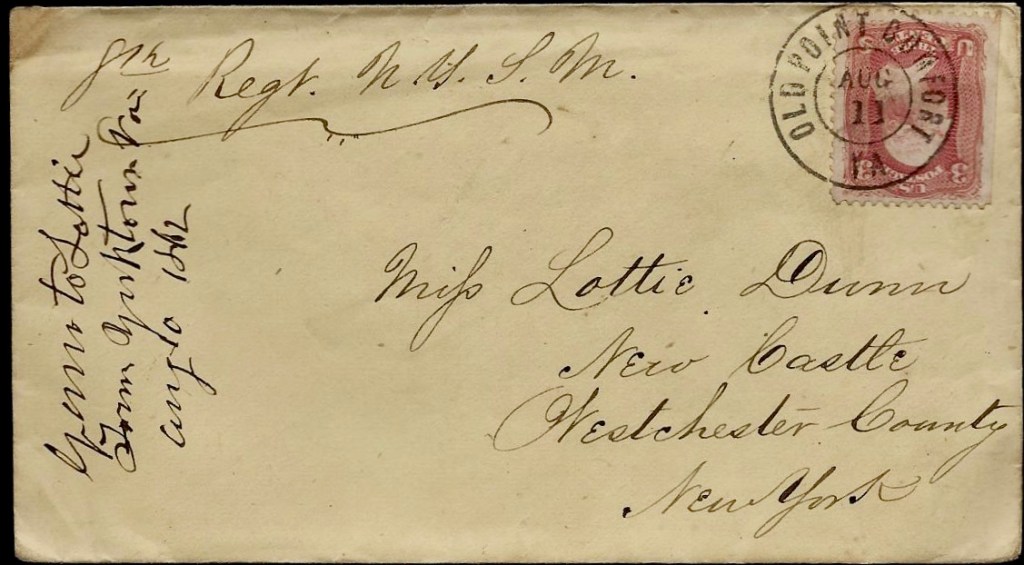 8th Regt. N.Y.S.M.
OLD POINT COMFORT
AUG
11
VA
U 3
U.S. POSTAGE
Miss Lottie Dunn
New Castle
Westchester County
New York
to Lottie
From Yorktown Va
Aug 10 1862